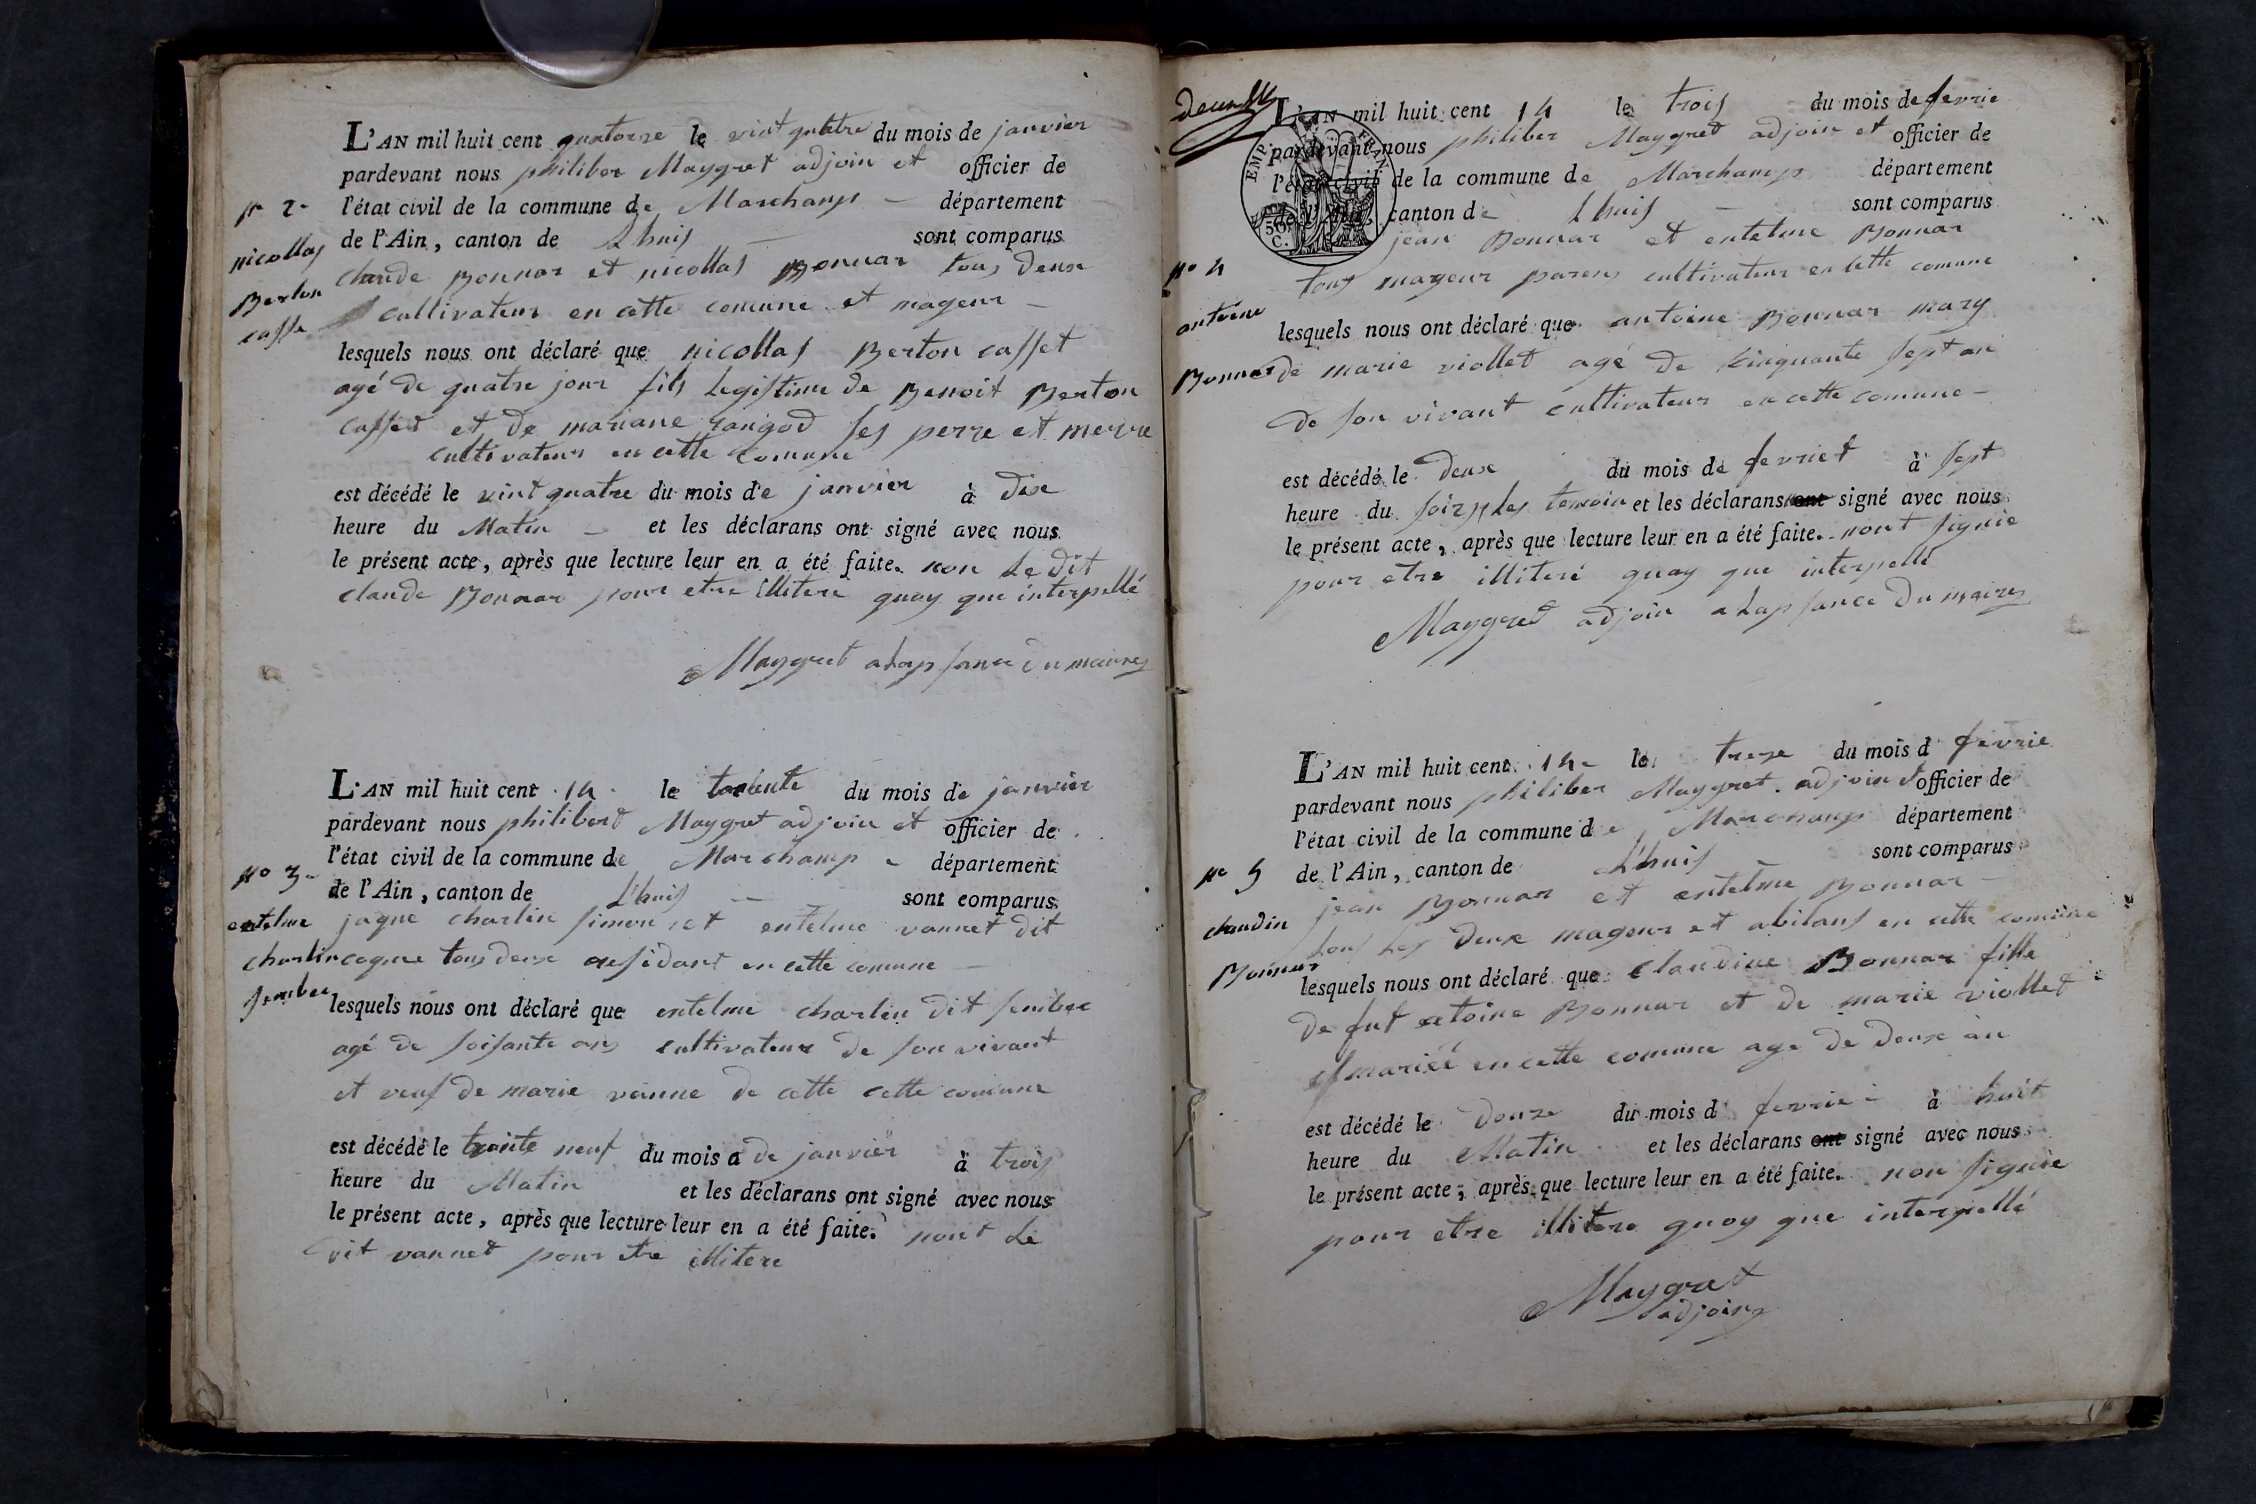 L'AN mil huit cent quatorze le vint quatre du mois de janvier
pardevant nous philiber Maygret adjoin et officier de
l'état civil de la commune de Marchamp département
de l'Ain, canton de Lhuis sont comparus
claude Bonnar et nicollas Bonnar tous deux
cultivateur en cette comune et mageur
lesquels nous ont déclaré que nicollas Berton casset
agé de quatre jour fils legistime de Benoit Berton
casset et de mariane rangod ses perre et merre
cultivateur en cette comune
est décédé le vint quatre du mois de janvier à dix
heure du Matin et les déclarans ont signé avec nous
le présent acte, après que lecture leur en a été faite. non le dit
claude Bonnar pour etre illitere quoy que interpellé
Maygret adjoin
No 2
nicollas
Berton
casse
L'AN mil huit cent 14 le trente du mois de janvier
pardevant nous philibert Maygret adjoin et officier de
l'état civil de la commune de Marchamp département
de l'Ain, canton de Lhuis sont comparus
jaque charlin simon et entelme vannet dit
cogne tous deux residant en cette comune
lesquels nous ont déclaré que entelme charlin dit
agé de soisante ans cultivateur de son vivant
et veuf de marie vanne de cette cette comune
est décédé le trente neuf du mois a de janvier à trois
heure du Matin et les déclarans ont signé avec nous
le présent acte, après que lecture leur en a été faite. nont le
dit vannet pour etre illitere
No 3
entelme
charlin
L'AN mil huit cent 14 le trois du mois de fevrie
pardevant nous philiber Maygret adjoin et officier de
l'état civil de la commune de Marchamp département
de l'Ain, canton de Lhuis sont comparus
jean Bonnar et entelme Bonnar
tous mageur parens cultivateur en cette comune
lesquels nous ont déclaré que antoine Bonnar mary
de marie viollet agé de cinquante sept an
de son vivant cultivateur en cette comune
est décédé le deux du mois de fevriet à sept
heure du soir les temoin et les déclarans ont signé avec nous
le présent acte, après que lecture leur en a été faite. nont signie
pour etre illiteré quoy que interpellé
Maygret adjoin a lapsance du maire
No 4
antoine
Bonnar
EMP FRAN
50 C.
L'AN mil huit cent 14 le treze du mois d fevrie
pardevant nous philiber Maygret adjoin et officier de
l'état civil de la commune de Marchamp département
de l'Ain, canton de Lhuis sont comparus
jean Bonnar et entelme Bonnar
tous les deux mageur et abitans en cette comune
lesquels nous ont déclaré que claudine Bonnar fille
de fut atoine Bonnar et de marie viollet
mariée en cette comune age de deux an
est décédé le douze du mois d fevrie à huit
heure du Matin et les déclarans ont signé avec nous
le présent acte, après que lecture leur en a été faite. non signie
pour etre illitere quoy que interpellé
Maygret
adjoin
No 5
claudin
Bonnar